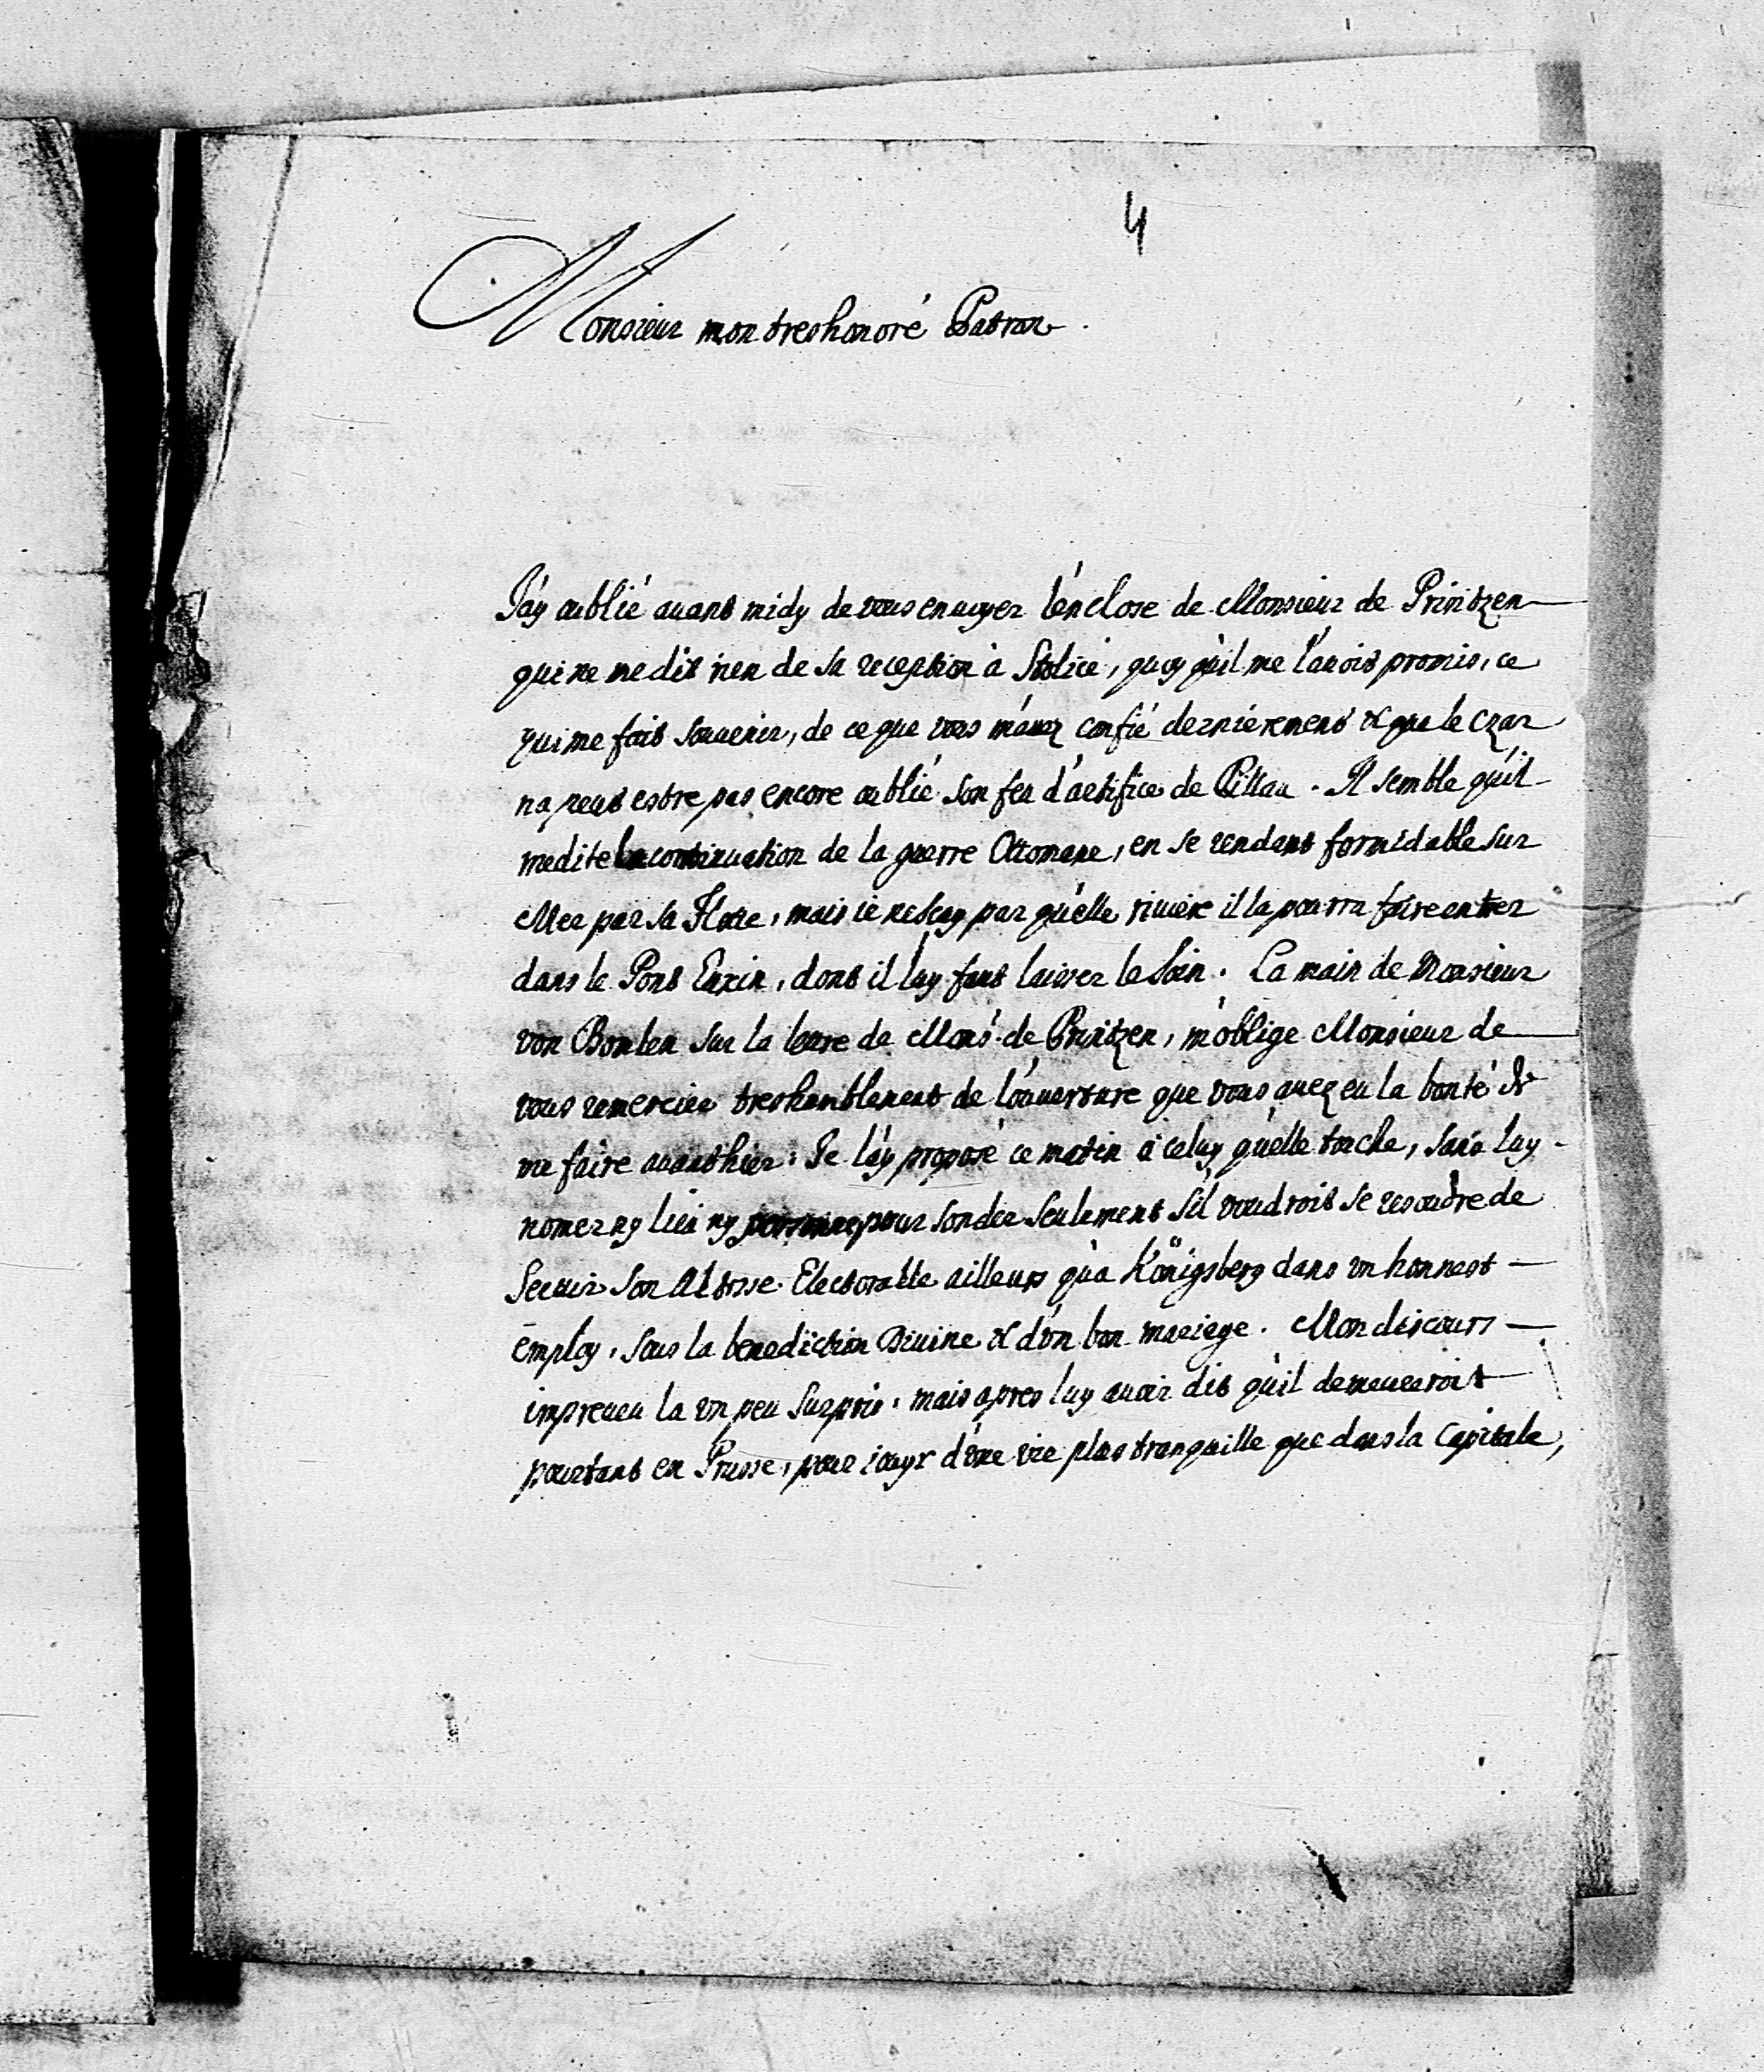 4
Monsieur mon treshonoré Patron.
J'ay oublié auant midy de vous enuoyer l'enclose de Monsieur de Printzen
qui ne me dit rien de sa reception à Stolicé, quoy qu'il me l'auoit promis, ce
qui me fait souuenir, de ce que vous m'auez confié dernierement & que le Czar
n'a peut estre pas encore oublié son feu d'artifice de Pillau. Il semble qu'il
medite la continuation de la guerre Ottomane, en se rendant formidable sur
Mer par sa Flotte, mais ie ne scay par qu'elle riuiere il la pourra faire entrer
dans le Pont Euxin, dont il luy faut laisser le soin. La main de Monsieur
von Bonlen sur la lettre de Mons. de Printzen, m'oblige Monsieur de
vous remercier treshumblement de l'ouuerture que vous auez eu la bonté de
me faire auanthier. Je l'ay proposé ce matin à celuy qu'elle touche, sans luy
nomer ny lieu ny personne, pour sonder seulement s'il voudroit se resoudre de
seruir son Altesse Electoralle ailleurs qu'a Königsberg dans un honnest
employ, sous la benediction Diuine & d'un bon mariege. Mon discours
impreueu la un peu surpris, mais apres luy auoir dit qu'il demeureroit
pourtant en Prusse, pour iouyr d'une vie plus tranquille que dans la Capitale,